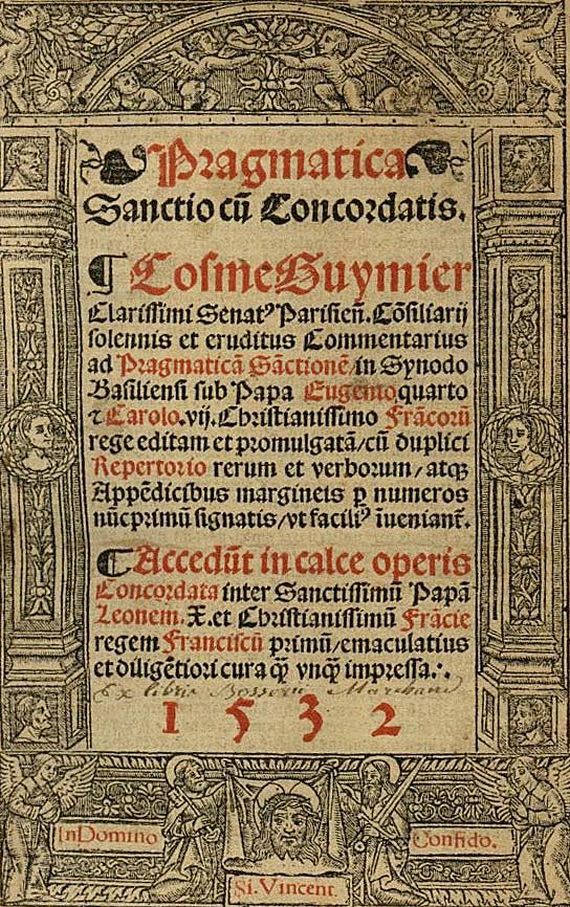 Pragmatica
Sanctio cū Concordatis.
¶ Cosme Guymier
Clarissimi Senatꝰ Parisieñ. Cōsiliarij
solennis et eruditus Commentarius
ad Pragmaticā Sāctionē/in Synodo
Basiliensi sub Papa Eugenio quarto
⁊ Carolo.vij.Christianissimo Frācorū
rege editam et promulgatā/cū duplici
Repertorio rerum et verborum/atqꝫ
Appēdicibus margineis ꝑ numeros
nūc primū signatis/vt faciliꝰ īueniant᷑.
¶ Accedūt in calce operis
Concordata inter Sanctissimū Papā
Leonem.X.et Christianissimū Frācie
regem Franciscū primū/emaculatius
et diligētiori cura q̄ꝫ vnq̄ꝫ impressa.∴.
Ex libris
1532
In Domino
Confido.
Si.Vincent.